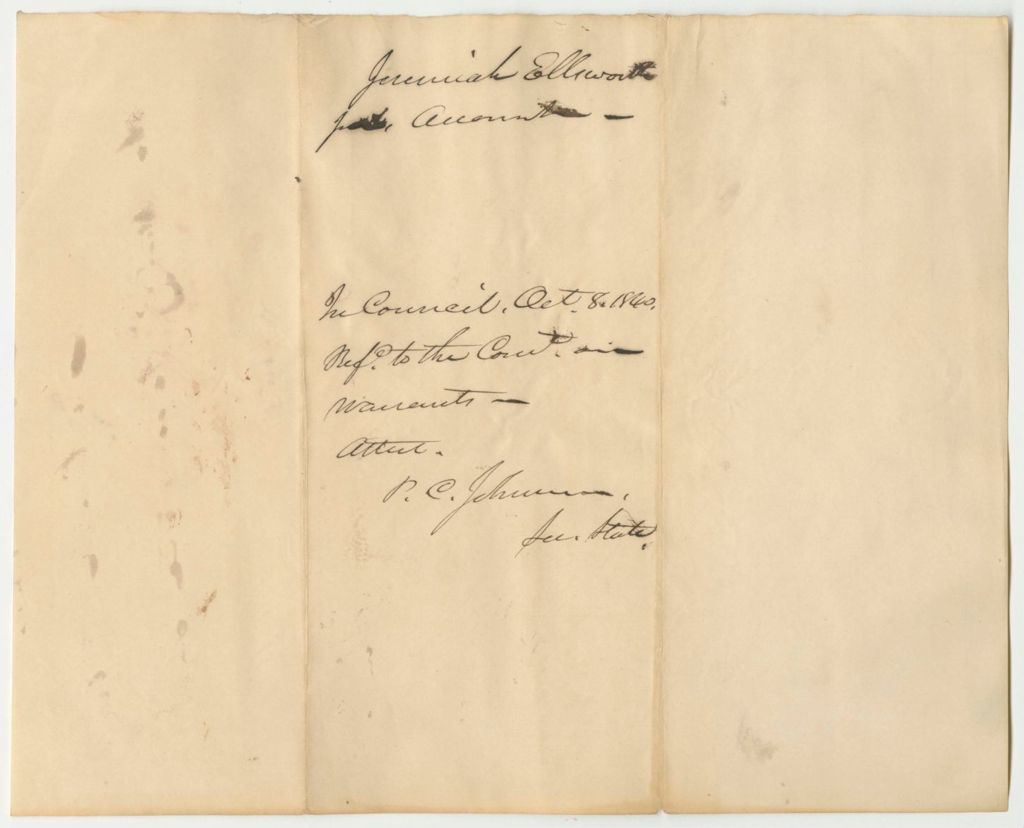 Jeremiah Ellsworth
Account —
In Council, Oct. 8. 1840.
Refd. to the Comt. on
Warrants —
Attest.
P. C. Johnson,
Sec. State.